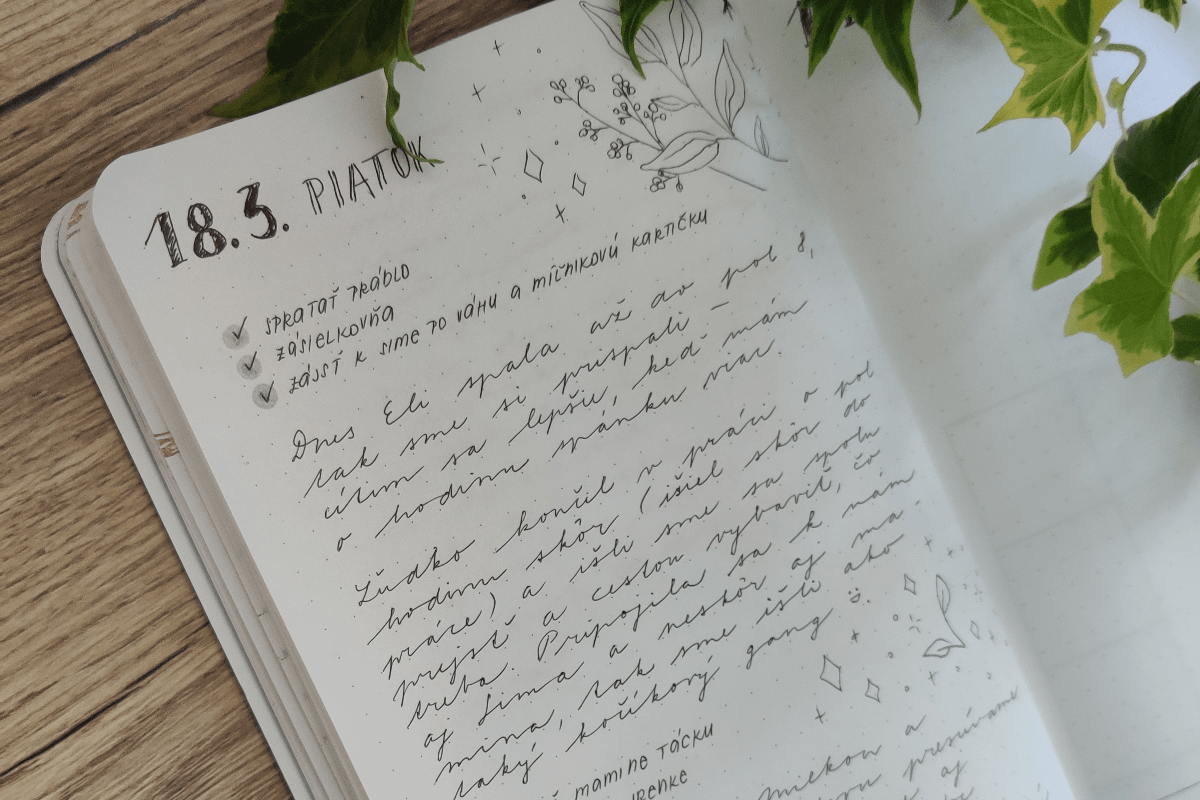 18.3. PIATOK
SPRATAŤ PRÁDLO
ZÁSIELKOVŇA
ZÁJSŤ K SIME PO VÁHU A MÍĽNIKOVÚ KARTIČKU
Dnes Eli spala až do pol 8,
tak sme si prispali –
cítim sa lepšie, keď mám
o hodinu spánku viac.
Ľudko končil v práci o pol
hodinu skôr (išiel skôr do
práce) a išli sme sa spolu
prejsť a cestou vybaviť, čo
treba. Pripojila sa k nám
aj Sima a neskôr aj ma-
mina, tak sme išli ako
taký kočíkový gang :).
mamine TÁCKU
miekou a
presúvame
aj